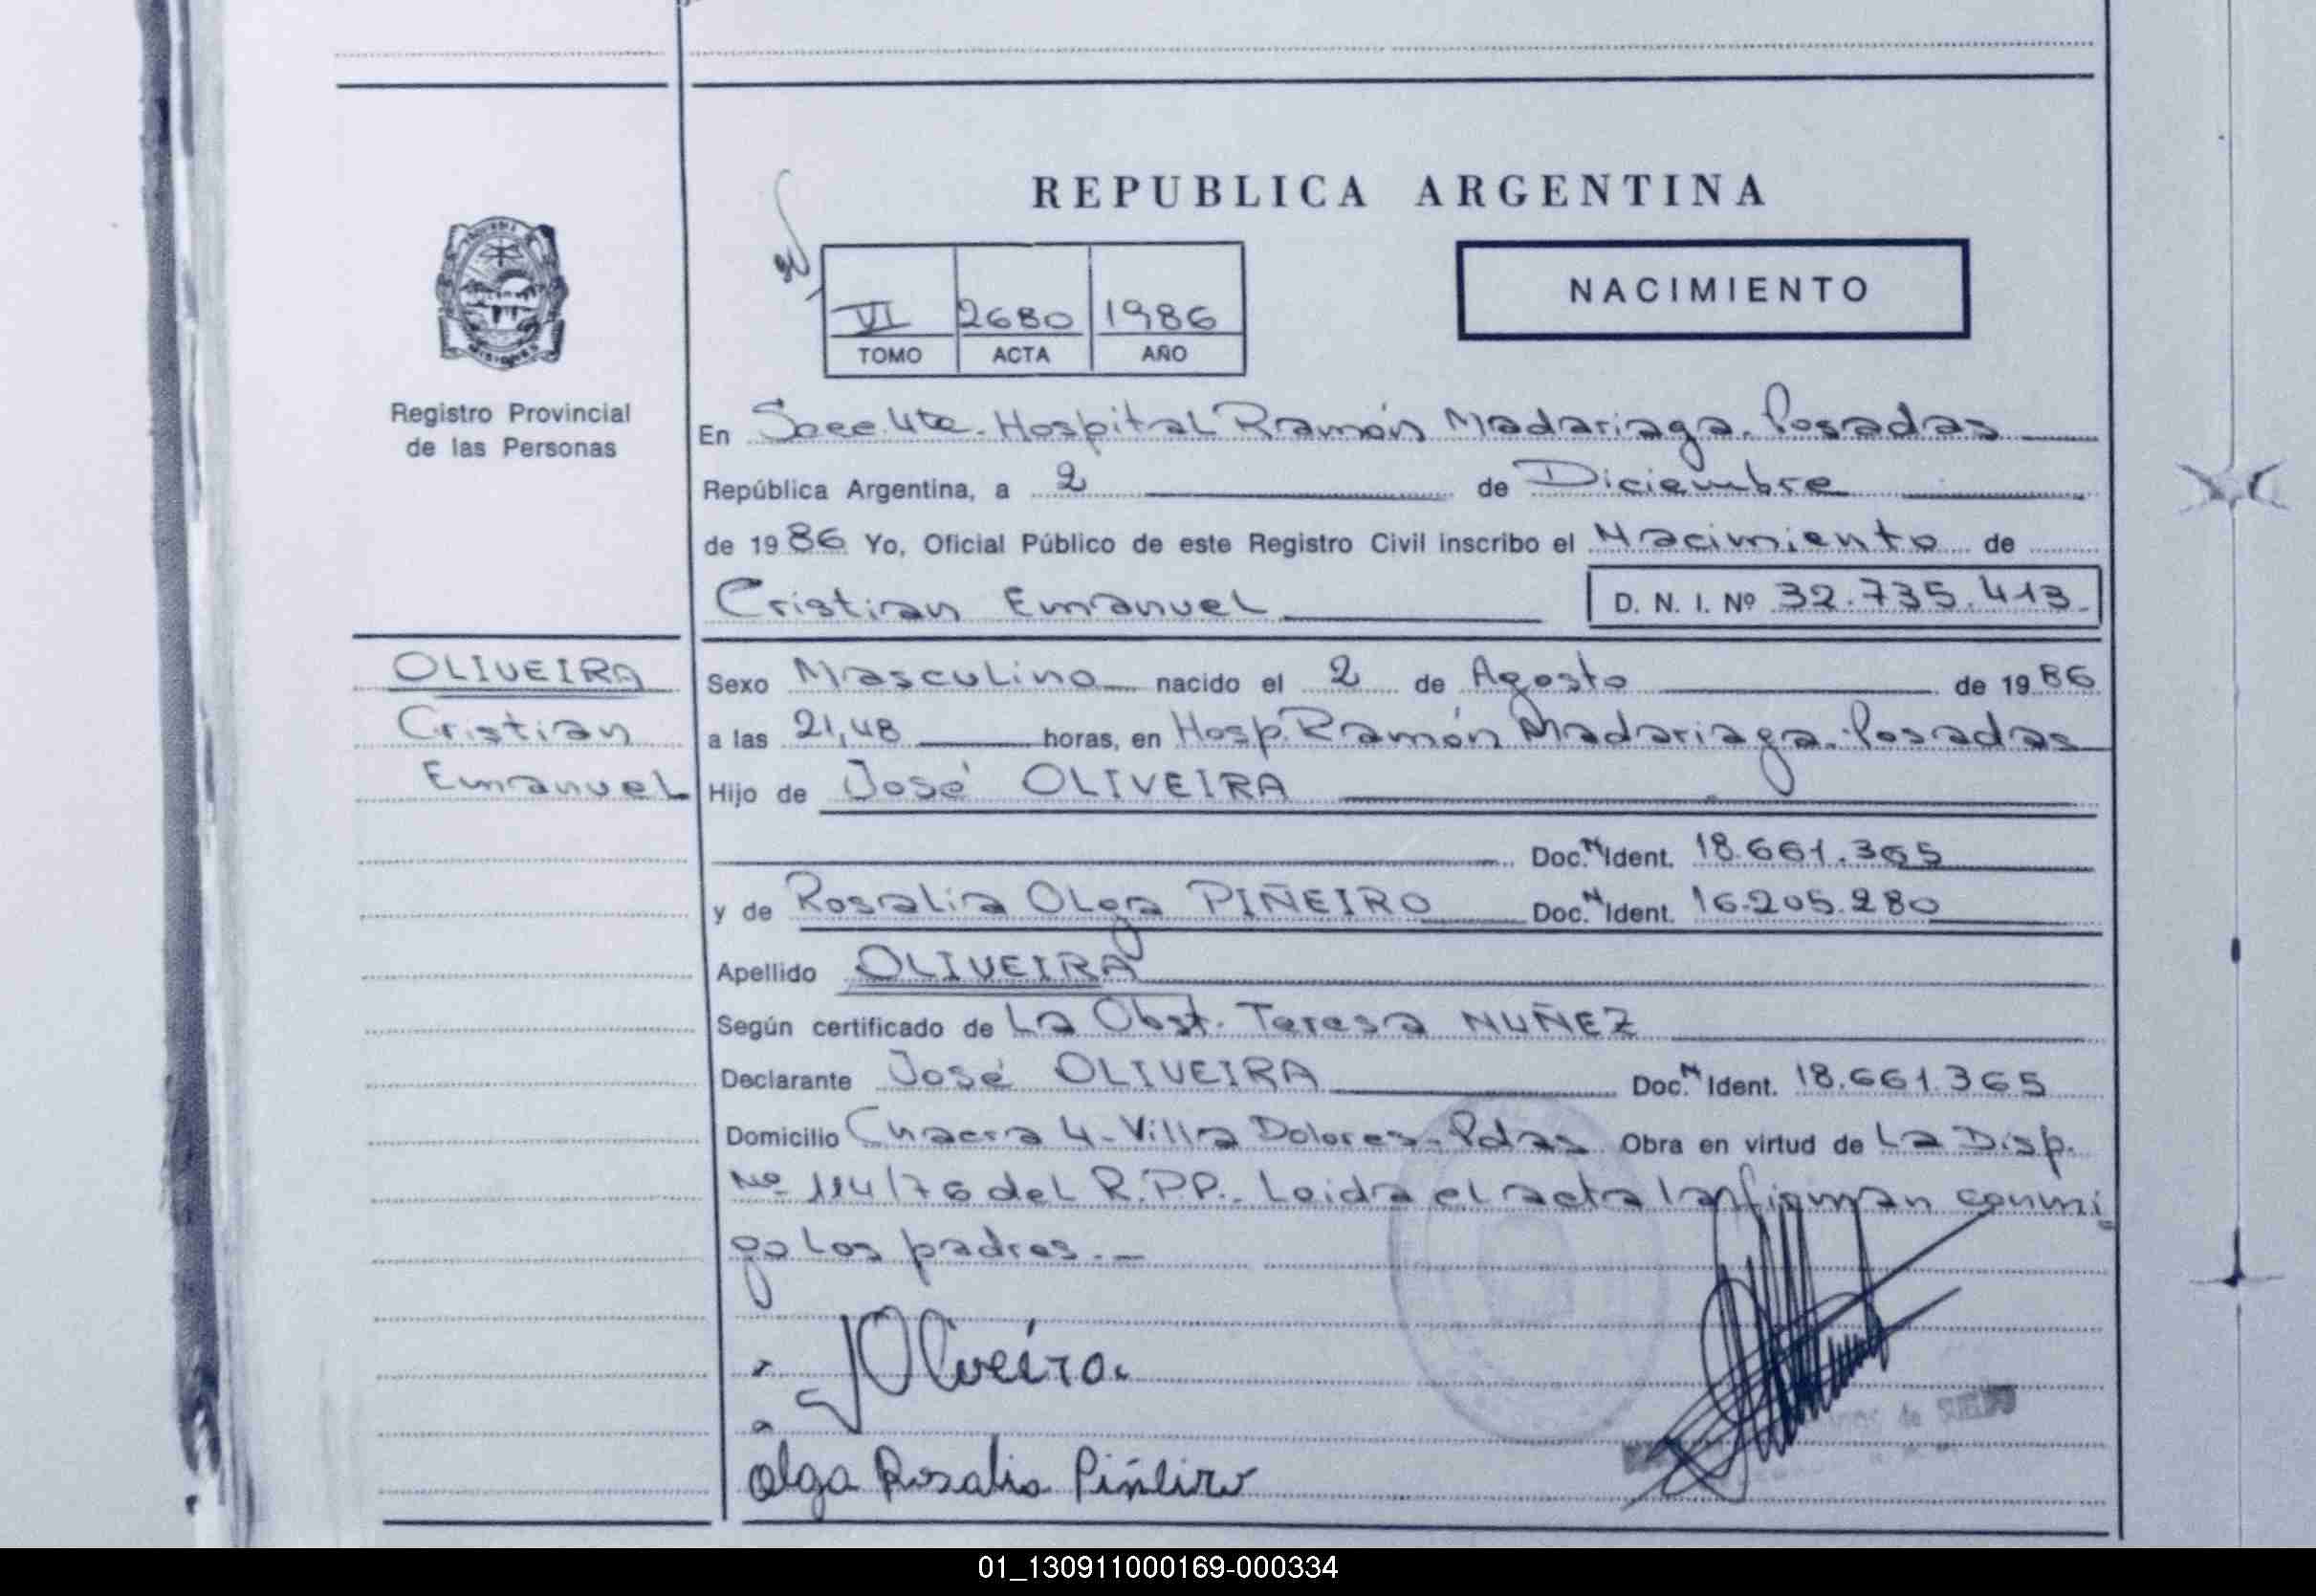 REPUBLICA ARGENTINA
NACIMIENTO
VI 2680 1986
TOMO ACTA AÑO
MISIONES
Registro Provincial
de las Personas
En Secc. 4ta. Hospital Ramón Madariaga. Posadas
República Argentina, a 2 de Diciembre
de 1986 Yo, Oficial Público de este Registro Civil inscribo el Nacimiento de
Cristian Emanuel D. N. I. Nº 32.735.413.
OLIVEIRA
Cristian
Emanuel
Sexo Masculino nacido el 2 de Agosto de 1986
a las 21,48 horas, en Hosp. Ramón Madariaga. Posadas
Hijo de José OLIVEIRA
Doc. N Ident. 18.661.365
y de Rosalia Olga PIÑEIRO Doc. N Ident. 16.205.280
Apellido OLIVEIRA
Según certificado de La Obst. Teresa NUÑEZ
Declarante José OLIVEIRA Doc. N Ident. 18.661.365
Domicilio Chacra 4 - Villa Dolores - Pdas Obra en virtud de La Disp.
Nº 114/76 del R.P.P. - Leida el acta la firman conmi
go los padres. -
J Oliveira.
Olga Rosalia Piñeiro
01_130911000169-000334